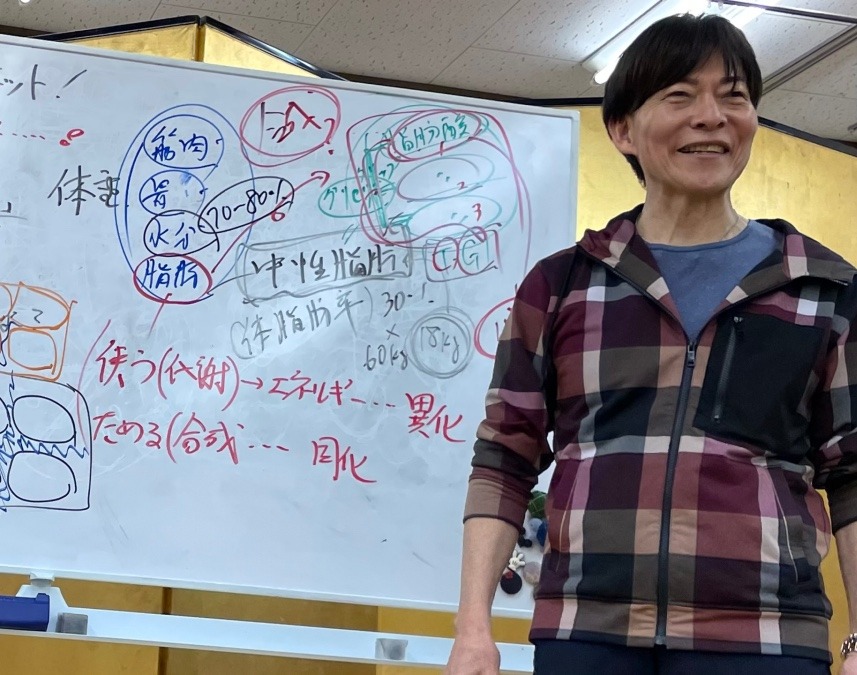 ット!
体重
筋肉
骨
水分
脂肪
70-80%
?
脂肪酸
〃 2
〃 3
中性脂肪
TG
(体脂肪率) 30%
×
60kg
18kg
使う(代謝)→エネルギー… 異化
ためる(合成… 同化